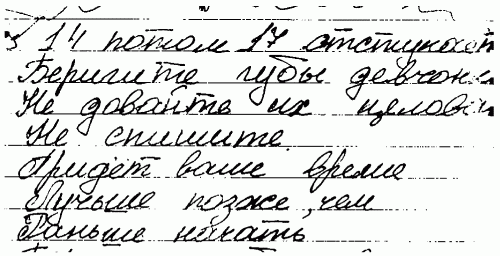 14 потом 17 отстукает
Беригите губы девчонк
Не довайте их целова
Не спишите
Придёт ваше время
Лучше позже, чем
Раньше начать